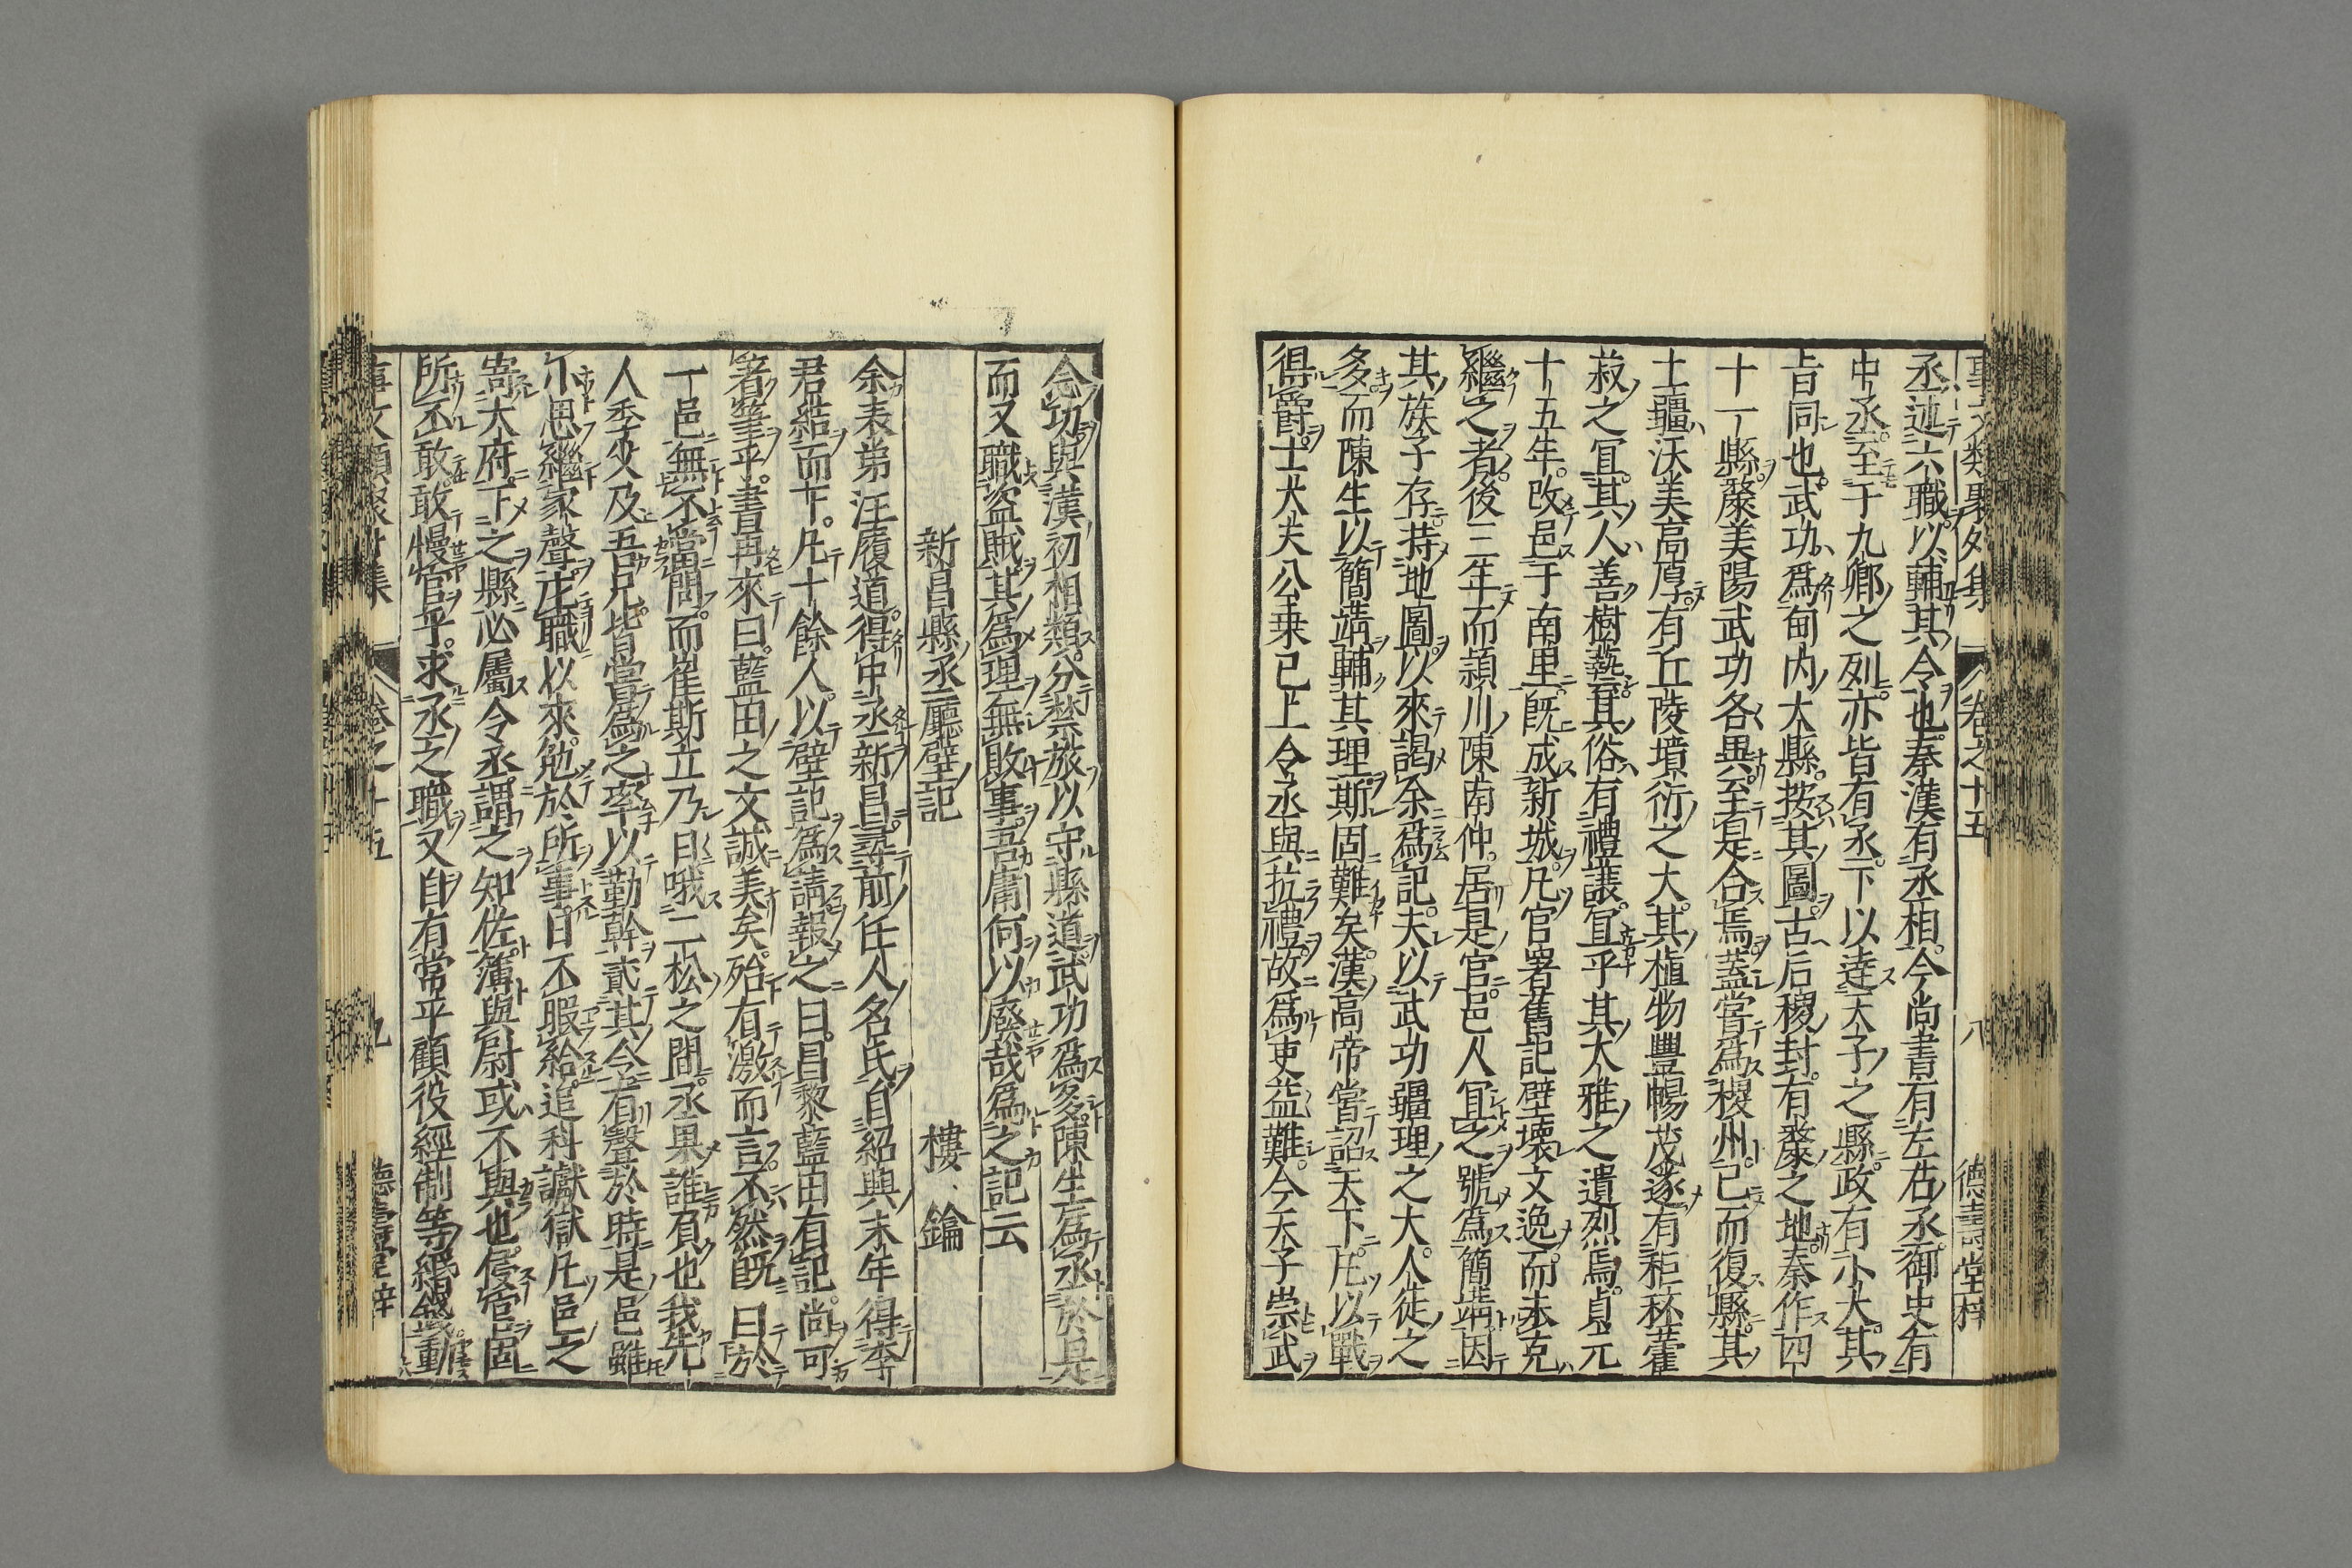 事文類聚外集 卷之十五 八 德壽堂梓
丞述六職以輔其令也秦漢有丞相今尚書有左右丞御史有
中丞至于九卿之列亦皆有丞下以逹天子之縣政有小大其
㫖同也武功爲甸内大縣按其圖古后稷封有漦之地秦作四
十一縣漦美陽武功各異至是合焉蓋嘗爲稷州已而復縣其
土疆沃美高厚有丘陵墳衍之大其植物豐暢茂遂有秬秠藿
菽之冝其人善樹藝其俗有禮讓冝乎其大雅之遺烈焉貞元
十五年改邑于南里旣成新城凡官署舊記壁壞文逸而未克
繼之者後三年而頴川陳南仲居是官邑人冝之號爲簡靖因
其族子存持地圖以來謁余爲記夫以武功疆理之大人徒之
多而陳生以簡靖輔其理斯固難矣漢高帝嘗詔天下凡以戰
得爵士大夫公乗已上令丞與抗禮故爲吏益難今天子崇武
念功與漢初相類分禁旅以守縣道武功爲多陳生爲丞於是
而又職盗賊其爲理無敗事吾庸何以廢哉爲之記云
新昌縣丞廳壁記 樓鑰
余表弟汪履道得中丞新昌尋前任人名氏自紹興末年得李
君結而下凡十餘人以壁記爲請報之曰昌黎藍田有記尚可
著筆乎書再來曰藍田之文誠美矣殆有激而言不然旣曰於
一邑無不當問而崔斯立乃曰哦二松之間丞果誰負也我先
人季父及吾兄皆當爲之率以勤幹貳其令者聲於時是邑雖
小思繼家聲
職以來勉於所事日不暇給追科讞獄凡邑之
寄大府下之縣必屬令丞謂之知佐簿與尉或不與也侵官固
所不敢敢慢官乎求丞之職又自有常平顧役經制等緡錢動
事文類聚外集 卷之十五 九 德壽堂梓